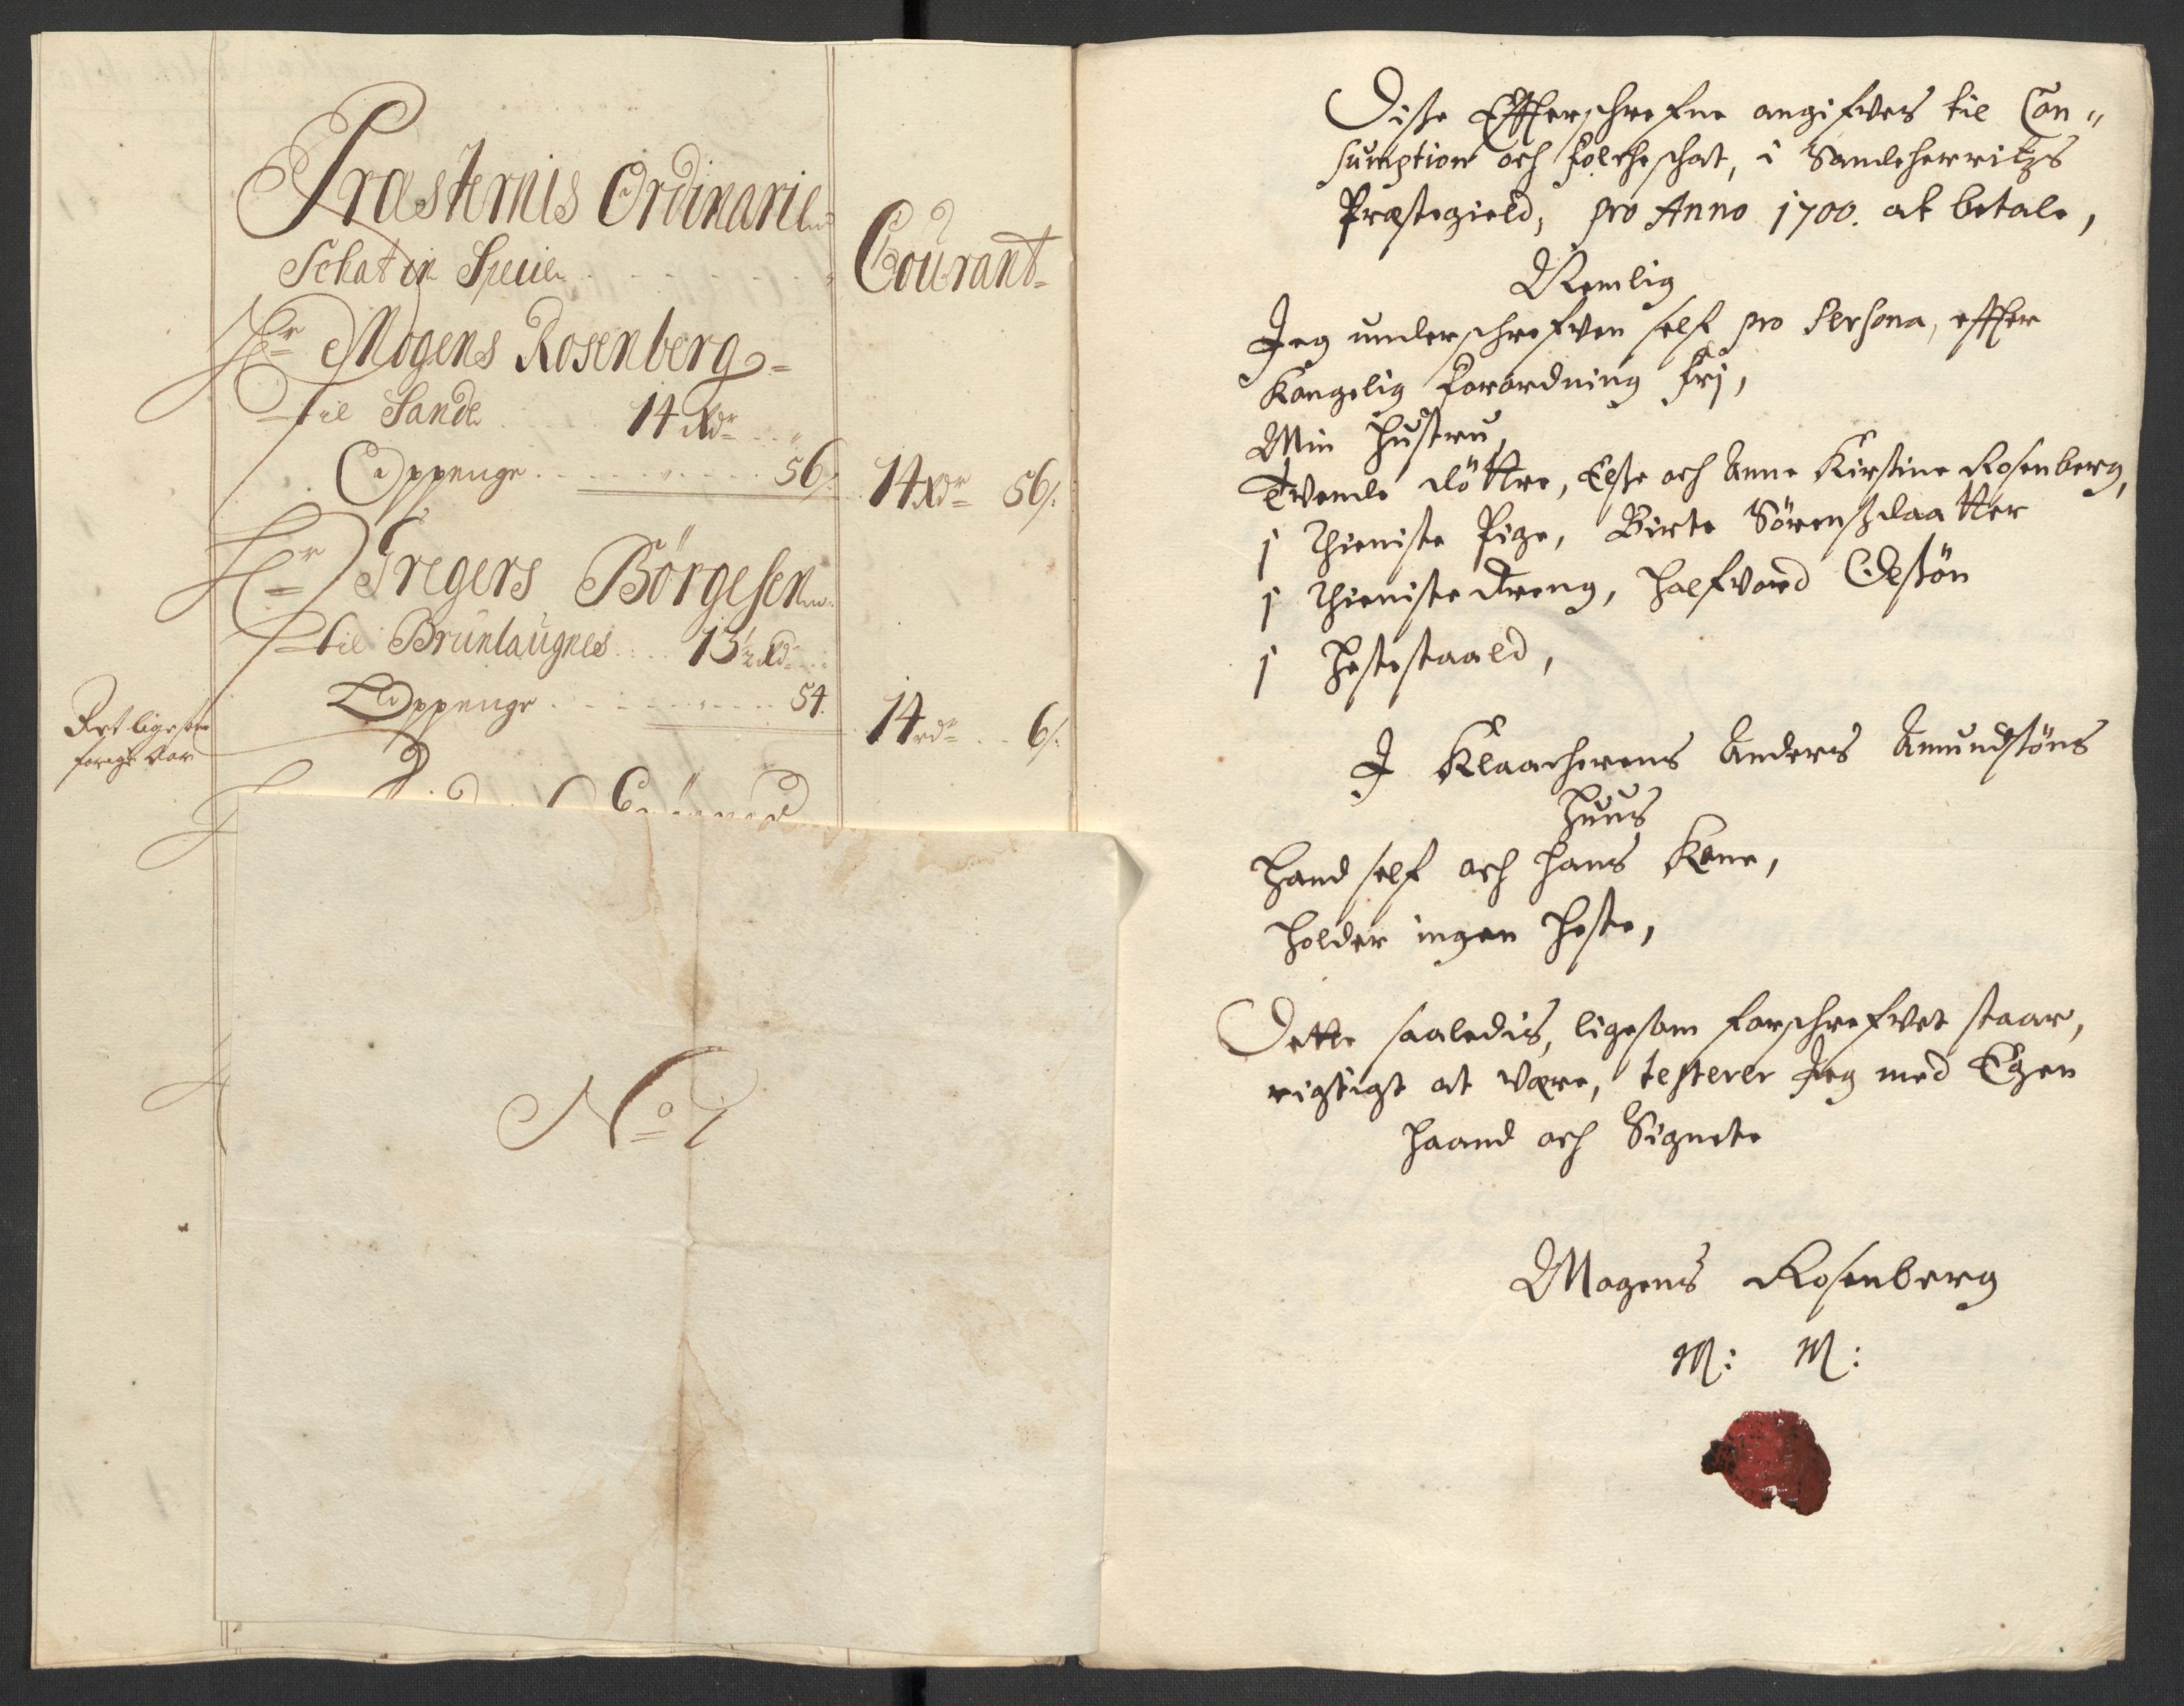 Præsternis Ordinarie
Schat in Specie
Courant
Hr Mogens Rosenberg
til Sande 14 Rdr
Oppenge 56 s:
14 Rdr 56 s:
Hr Gregers Börgesen
til Brunlaugnes 13½ Rd
Oppenge 54
14 rdr 6 s:
Art ligesom
forige Aar
No 1
Disse Effterschrefne angifves til Con„
sumption och folcheschat, i Sandeherritzs
Præstegield, pro Anno 1700. at betale,
Nemlig
Jeg underschrefven self pro Persona, effter
Kongelig forordning frj,
Min Hustru,
Tvende döttre, Else och Anne Kirstine Rosenberg,
j Thieniste Pige, Birte Sörenssdaatter
j Thieniste dreng, Halfvord Olssön
j Hestestaald,
J Klaacherens Anders Amundssöns
Huus
Hand self och hans Kone,
holder ingen heste,
Dette saaledis, ligesom forschrefvet staar,
rigtigt at være, testerer Jeg med Egen
haand och Signete
Mogens Rosenberg
M: M: